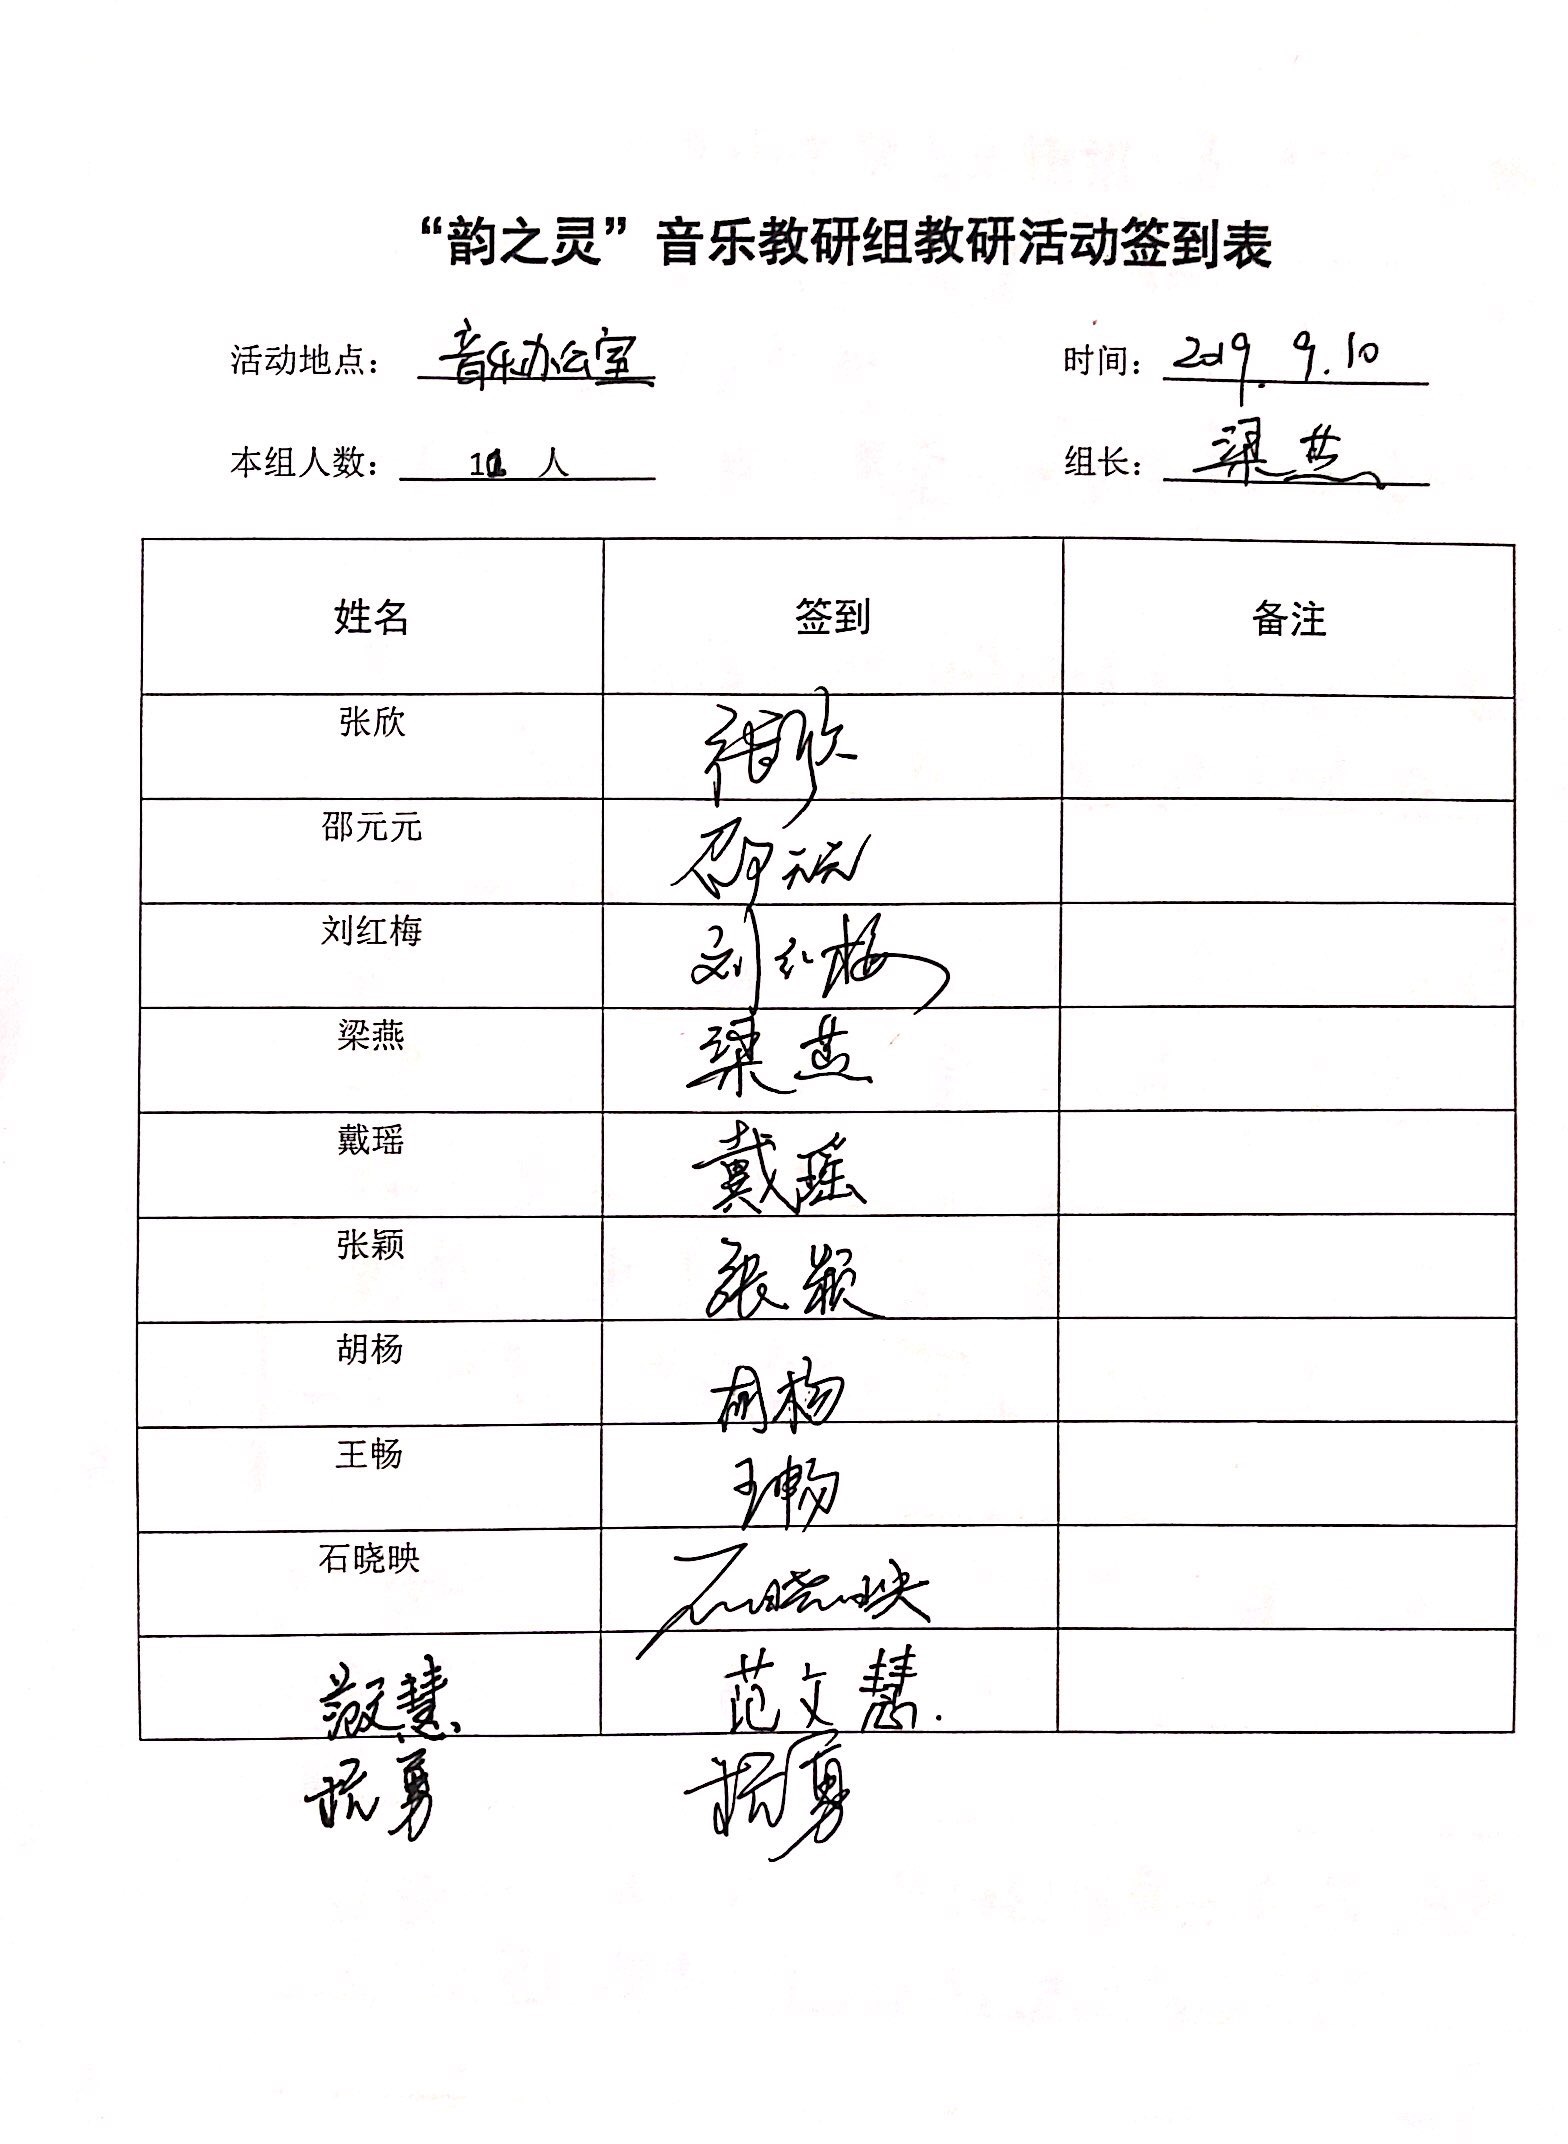 “韵之灵”音乐教研组教研活动签到表
活动地点： 音乐办公室 时间：2019.9.10
本组人数： 11 人 组长：梁燕
姓名 签到 备注
张欣 张欣
邵元元 邵元元
刘红梅 刘红梅
梁燕 梁燕
戴瑶 戴瑶
张颖 张颖
胡杨 胡杨
王畅 王畅
石晓映 石晓映
范文慧 范文慧.
勇 勇